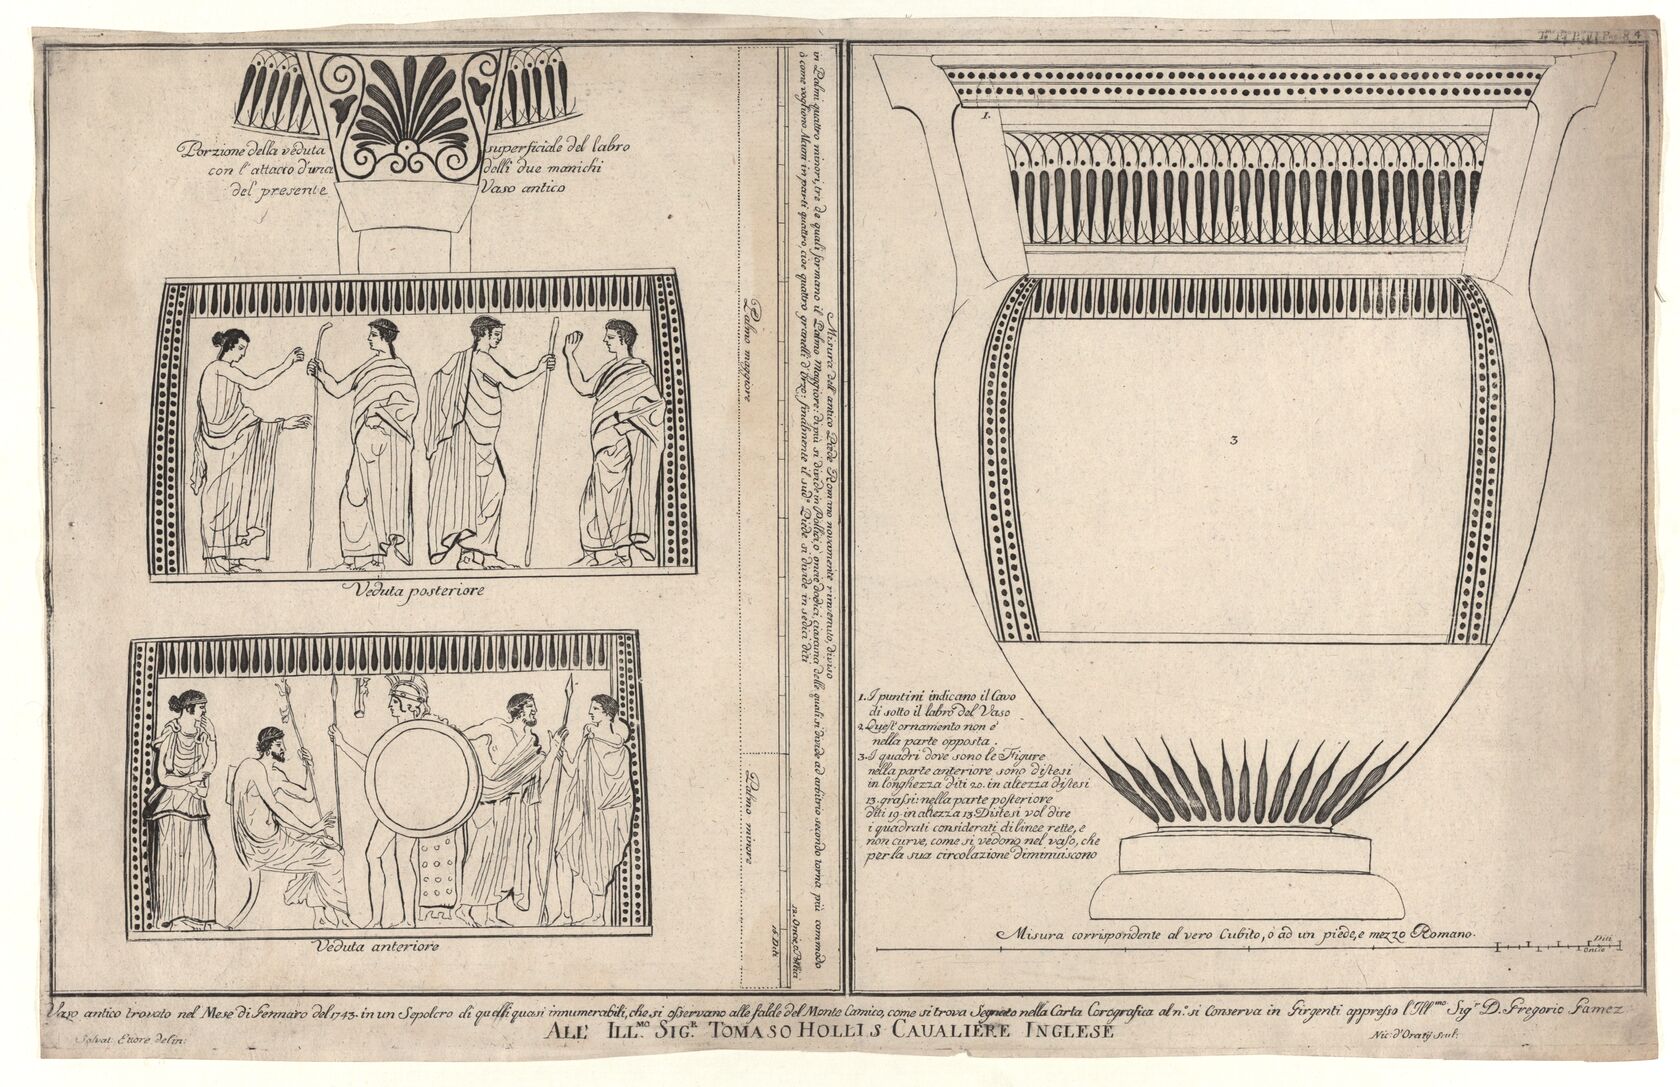 Porzione della veduta superficiale del labro
con l'attacco d'una delli due manichi
del presente Vaso antico
Veduta posteriore
Veduta anteriore
Palmo maggiore
Palmo minore
Misura dell'antico Piede Romano novamente rinvenuto, diviso
in Palmi quattro minori, tre de quali formano il Palmo Maggiore: di più si divide in Pollici, ò oncie dodici, ciascuna delle quali si divide ad arbitrio secondo torna più commodo
ò come vogliono Alcuni in parti quattro, cioe quattro granelli d'Orzo: finalmente il sud.º Piede si divide in sedici diti
12. Oncie, ò Pollici
16. Diti
1.
2
3
1. I puntini indicano il Cavo
di sotto il labro del Vaso
2. Quest'ornamento non è
nella parte opposta.
3. I quadri dove sono le Figure
nella parte anteriore sono distesi
in longhezza diti 20. in altezza distesi
13. grassi: nella parte posteriore
diti 19. in altezza 13. Distesi vol dire
i quadrati considerati di linee rette, e
non curve, come si vedono nel vaso, che
per la sua circolazione diminuiscono
Misura corrispondente al vero Cubito, ò ad un piede, e mezzo Romano.
Diti
Oncie
Vaso antico trovato nel Mese di Gennaro del 1743. in un Sepolcro di quelli quasi innumerabili, che si osservano alle falde del Monte Camico, come si trova Segnato nella Carta Corografica al n.º si Conserva in Girgenti appresso l'Ill.mo Sig.r D. Gregorio Gamez
ALL' ILL.MO SIG.R TOMASO HOLLIS CAUALIERE INGLESE
Salvat. Ettore delin:
Nic. d'Oratÿ Scul: